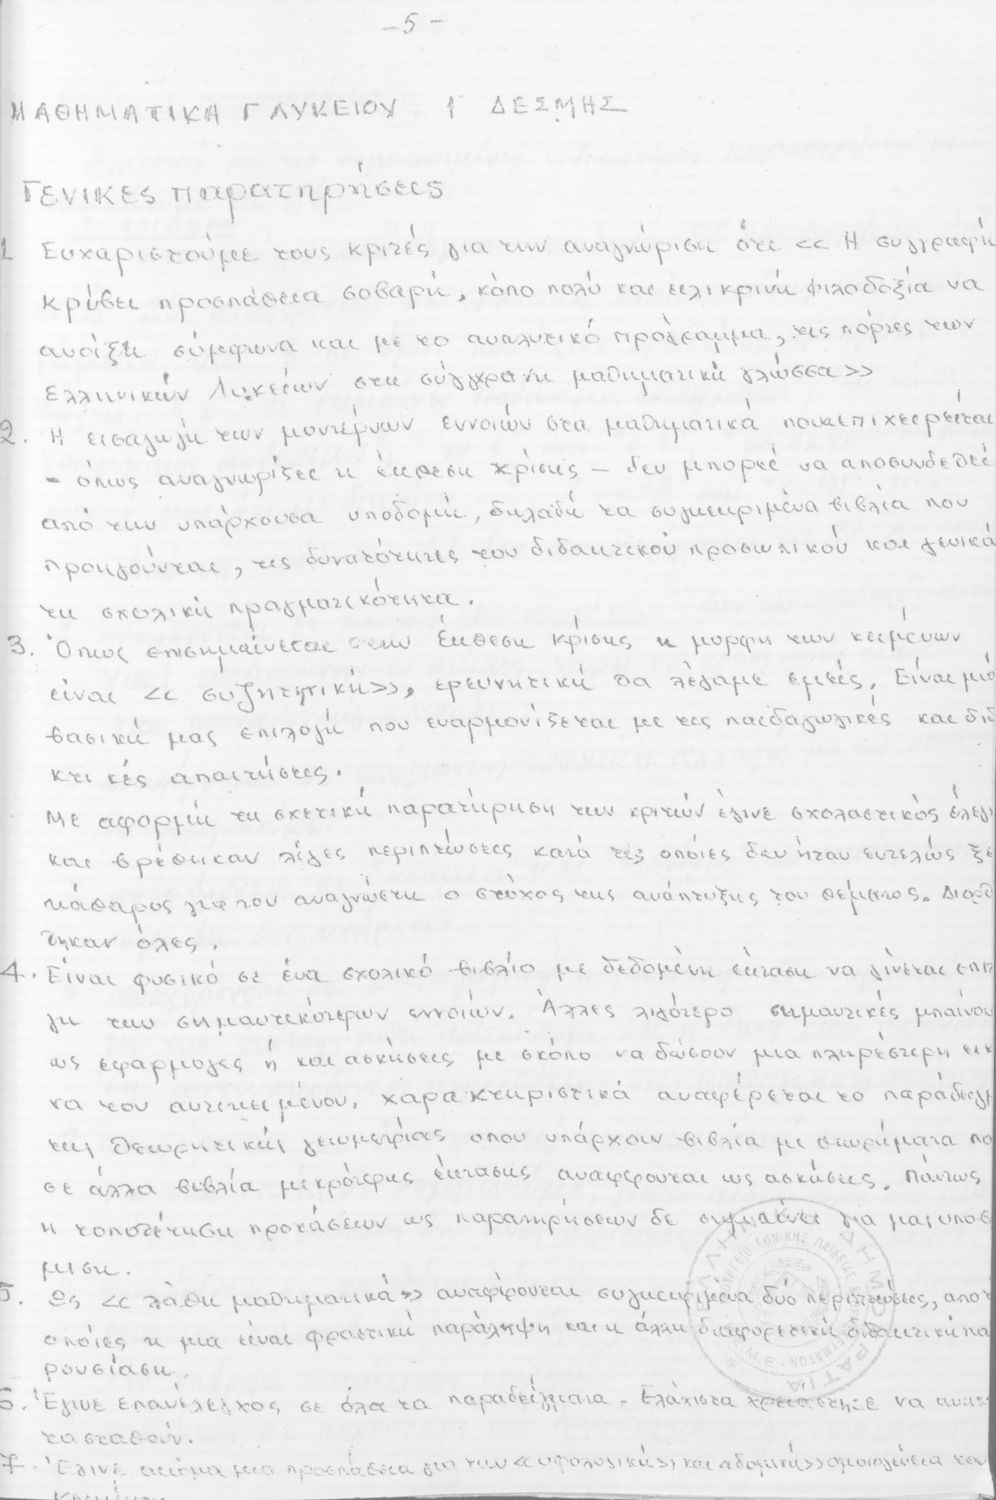 - 5 -
ΜΑΘΗΜΑΤΙΚΑ Γ ΛΥΚΕΙΟΥ 1 ΔΕΣΜΗΣ
ΓΕΝΙΚΕΣ Παρατηρήσεις
1 Ευχαριστούμε τους κριτές για την αναγνώριση ότι << Η συγγραφή
κρύβει προσπάθεια σοβαρή, κόπο πολύ και ειλικρινή φιλοδοξία να
ανοίξη σύμφωνα και με το αναλυτικό πρόγραμμα, τις πόρτες των
Ελληνικών Λυκείων στη σύγχρονη μαθηματική γλώσσα>>
2. Η εισαγωγή των μοντέρνων εννοιών στα μαθηματικά που επιχειρείται
- όπως αναγνωρίζει η έκθεση κρίσης - δεν μπορεί να αποσυνδεθεί
από την υπάρχουσα υποδομή, δηλαδή τα συγκεκριμένα βιβλία που
προηγούνται, τις δυνατότητες του διδακτικού προσωπικού και γενικά
τη σχολική πραγματικότητα.
3. Όπως επισημαίνεται στην Έκθεση Κρίσης η μορφή των κειμένων
είναι << συζητητική>>, ερευνητική θα λέγαμε εμείς. Είναι μιά
βασική μας επιλογή που εναρμονίζεται με τις παιδαγωγικές και διδ
κτικές απαιτήσεις.
Με αφορμή τη σχετική παρατήρηση των κριτών έγινε σχολαστικός έλεγ
και βρέθηκαν λίγες περιπτώσεις κατά τις οποίες δεν ήταν εντελώς ξε
κάθαρος για τον αναγνώστη ο στόχος της ανάπτυξης του θέματος. Διορθ
θηκαν όλες.
4. Είναι φυσικό σε ένα σχολικό βιβλίο με δεδομένη έκταση να γίνεται επι
γη των σημαντικότερων εννοιών. Άλλες λιγότερο σημαντικές μπαίνου
ως εφαρμογές ή και ασκήσεις με σκόπο να δώσουν μια πληρέστερη εικ
να του αντικειμένου. Χαρακτηριστικά αναφέρεται το παράδειγμ
της Θεωρητικής γεωμετρίας οπου υπάρχουν βιβλία με θεωρήματα πο
σε άλλα βιβλία μικρότερης έκτασης αναφέρονται ως ασκήσεις. Πάντως
η τοποθέτηση προτάσεων ως παρατηρήσεων δε σημαίνει για μας υποβ
μιση.
5. Ως << λάθη μαθηματικά>> αναφέρονται συγκεκριμένα δύο περιπτώσεις, από τ
οποίες η μια είναι φραστική παράληψη και η άλλη διαφορετική διδακτική πα
ρουσίαση.
6. Έγινε επανέλεγχος σε όλα τα παραδείγματα. Ελάχιστα χρειάστηκε να αντικ
τασταθούν.
7. Έγινε ακόμα μια προσπάθεια για την <<υφολογική>> και <<δομική>> ομοιογένεια των
κειμένων.